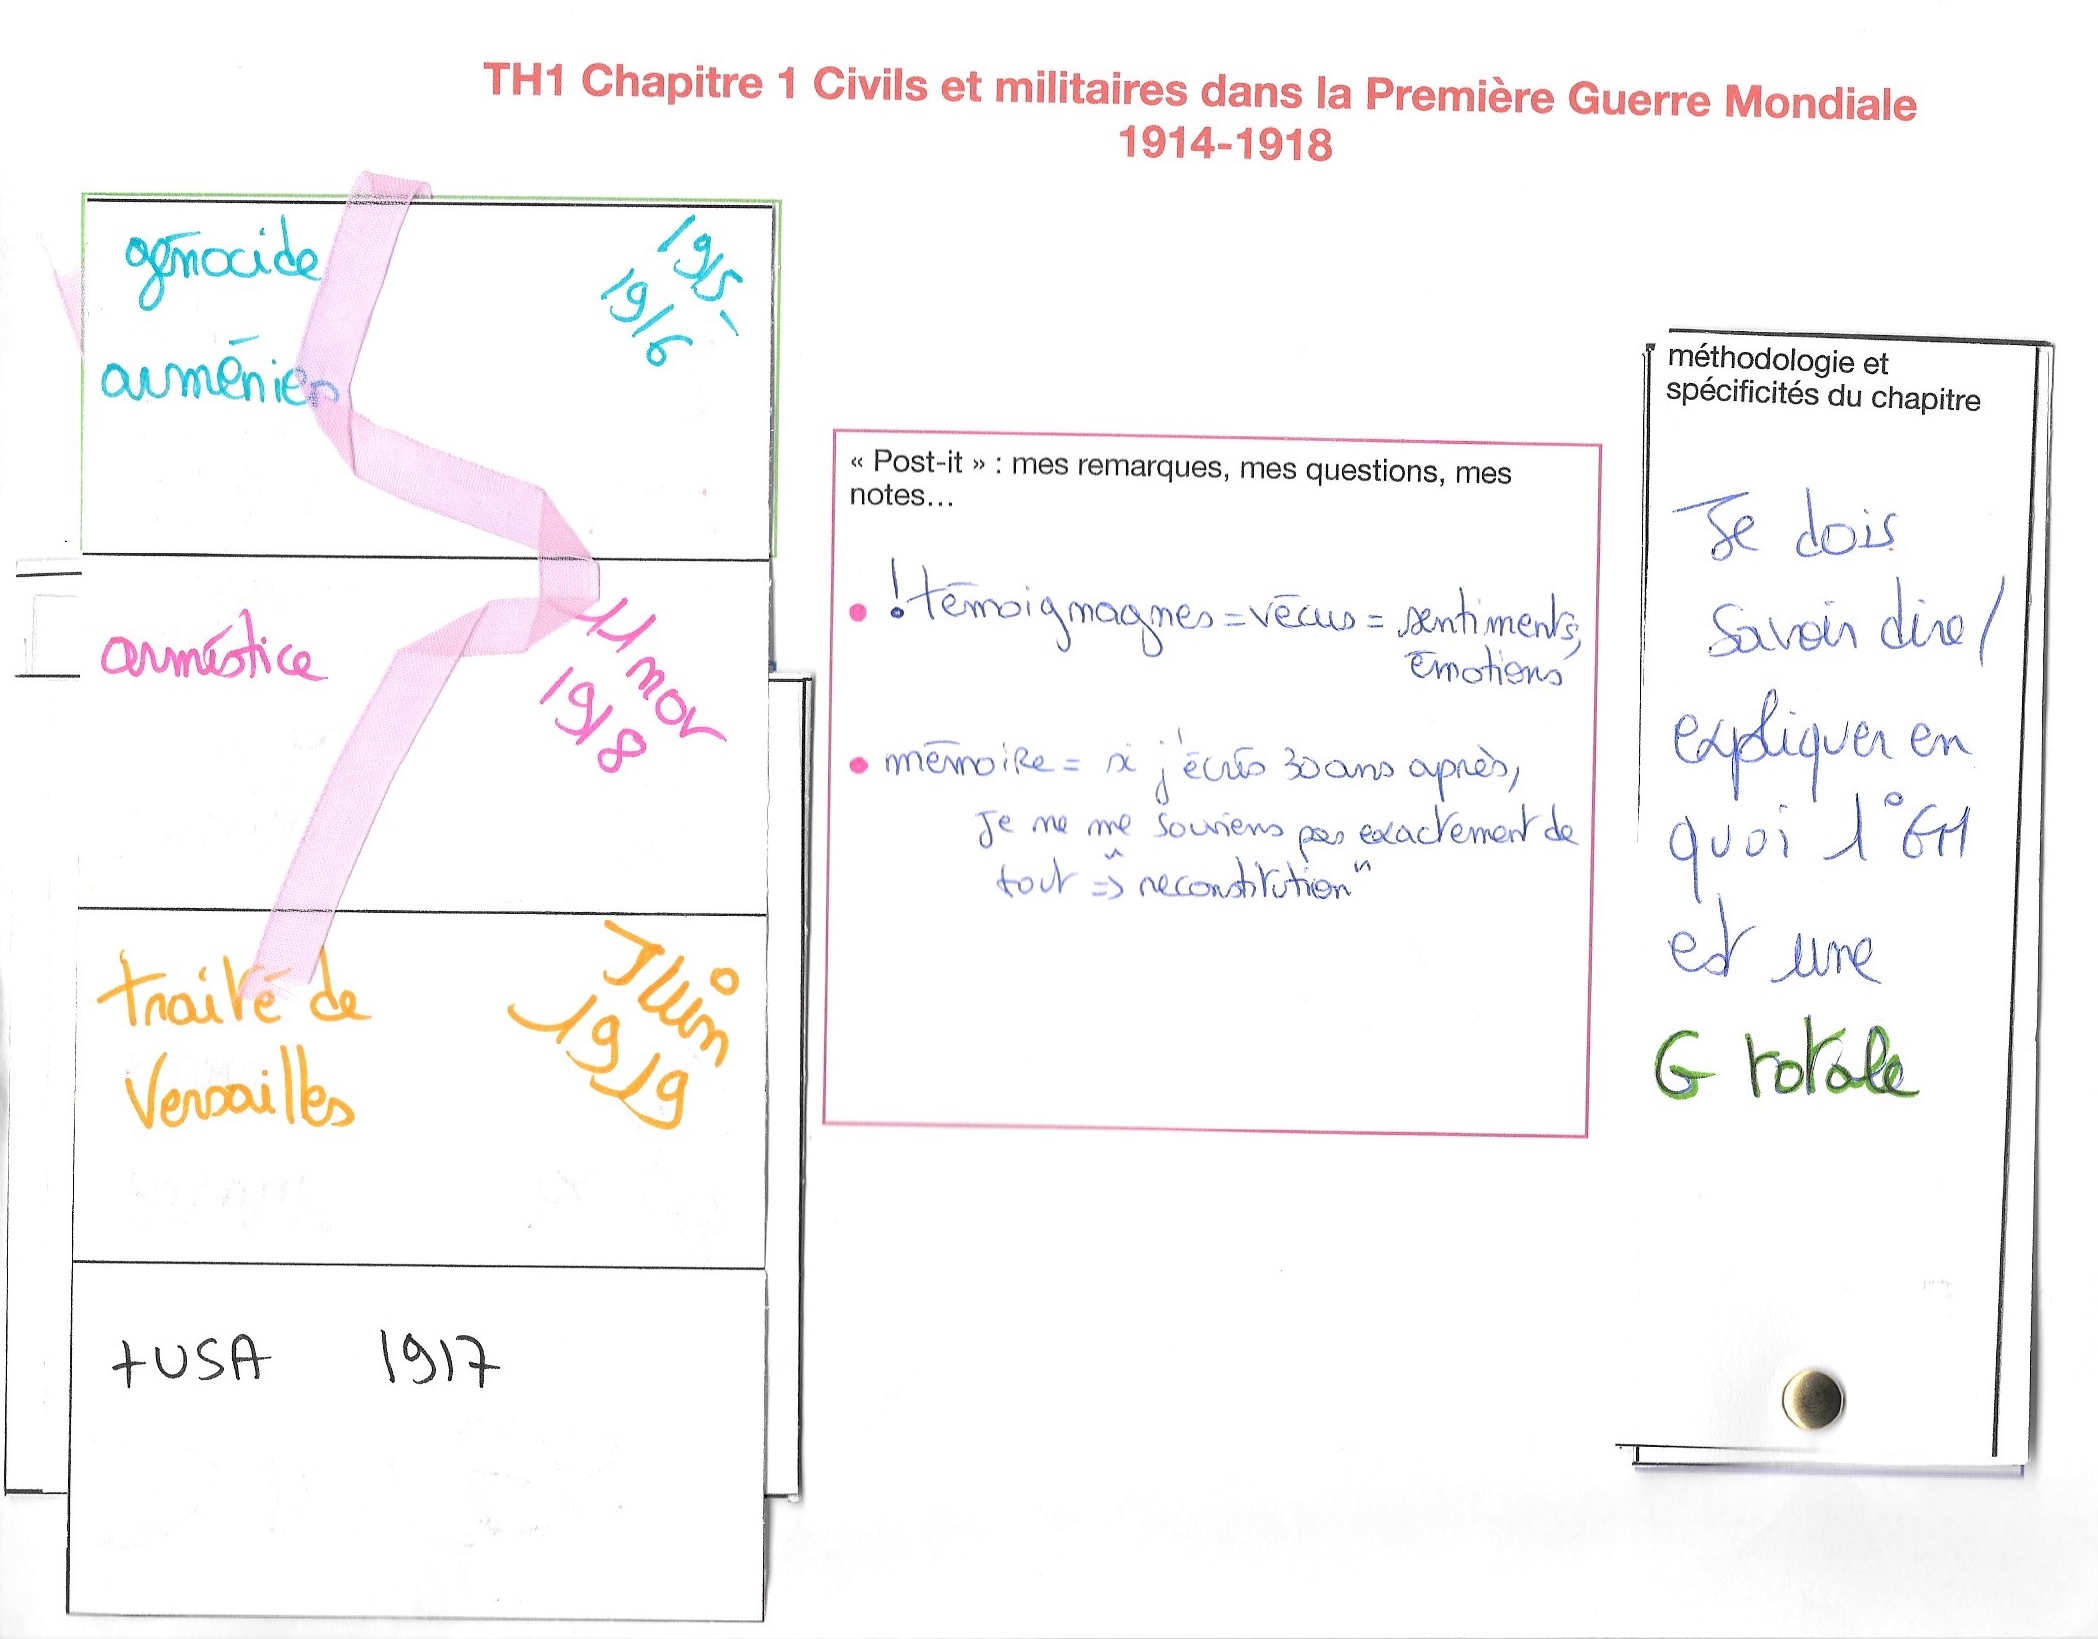 TH1 Chapitre 1 Civils et militaires dans la Première Guerre Mondiale
1914-1918
génocide
arménien
1915-
1916
armistice
11 nov
1918
traité de
Versailles
Juin
1919
+USA 1917
« Post-it » : mes remarques, mes questions, mes
notes…
• ! témoignagnes = vécus = sentiments,
émotions
• mémoire = si j'écris 30 ans après,
Je ne me souviens pas exactement de
tout => "reconstitution"
méthodologie et
spécificités du chapitre
Je dois
savoir dire/
expliquer en
quoi 1° GM
est une
G totale